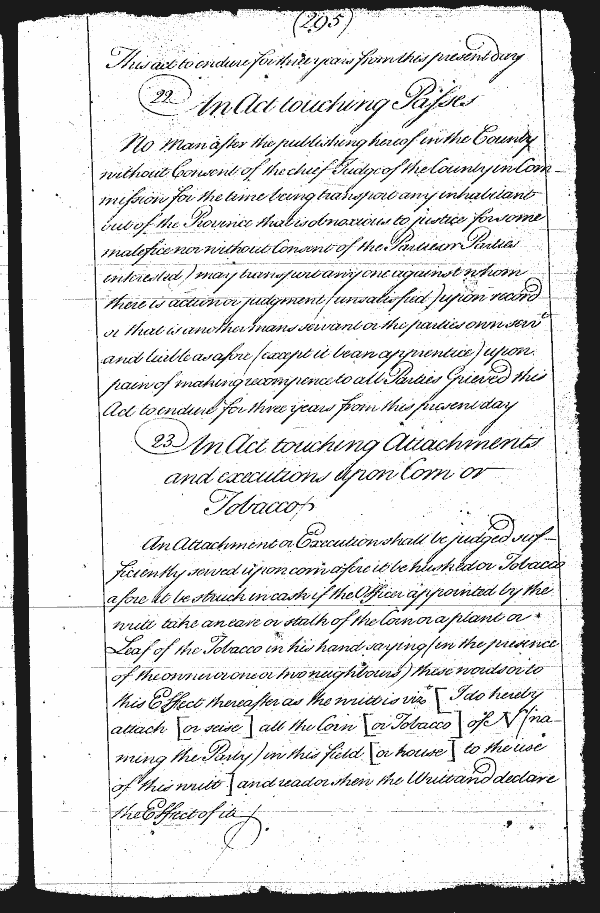 (295)
This act to endure for three years from this present day
22 An Act touching Passes
No man after the publishing hereof in the County
without Consent of the chief Judge of the County in Com-
mission for the time being transport any inhabitant
out of the Province that is obnoxious to justice for some
malefice nor without Consent of the Partie or Parties
interested) may transport any one against whom
there is action or judgment (unsatisfied) upon record
or that is another mans servant or the parties own servt
and liable as afore (except it be an apprentice) upon
pain of making recompence to all Parties Grieved this
Act to endure for three years from this present day
23 An Act touching Attachments
and executions upon Corn or
Tobacco
An Attachment or Execution shall be judged suf-
ficiently served upon corn afore it be husked or Tobacco
afore it be struck in cask if the Officer appointed by the
writt take an eare or stalk of the Corn or a plant or
Leaf of the Tobacco in his hand saying (in the presence
of the owner or one or two neighbours) these words or to
this Effect thereafter as the writt is vizt [I do hereby
attach [or seise] all the Corn [or Tobacco] of N (na-
ming the Party) in this field [or house] to the use
of this writt [and read or shew the Writt and declare
the Effect of it